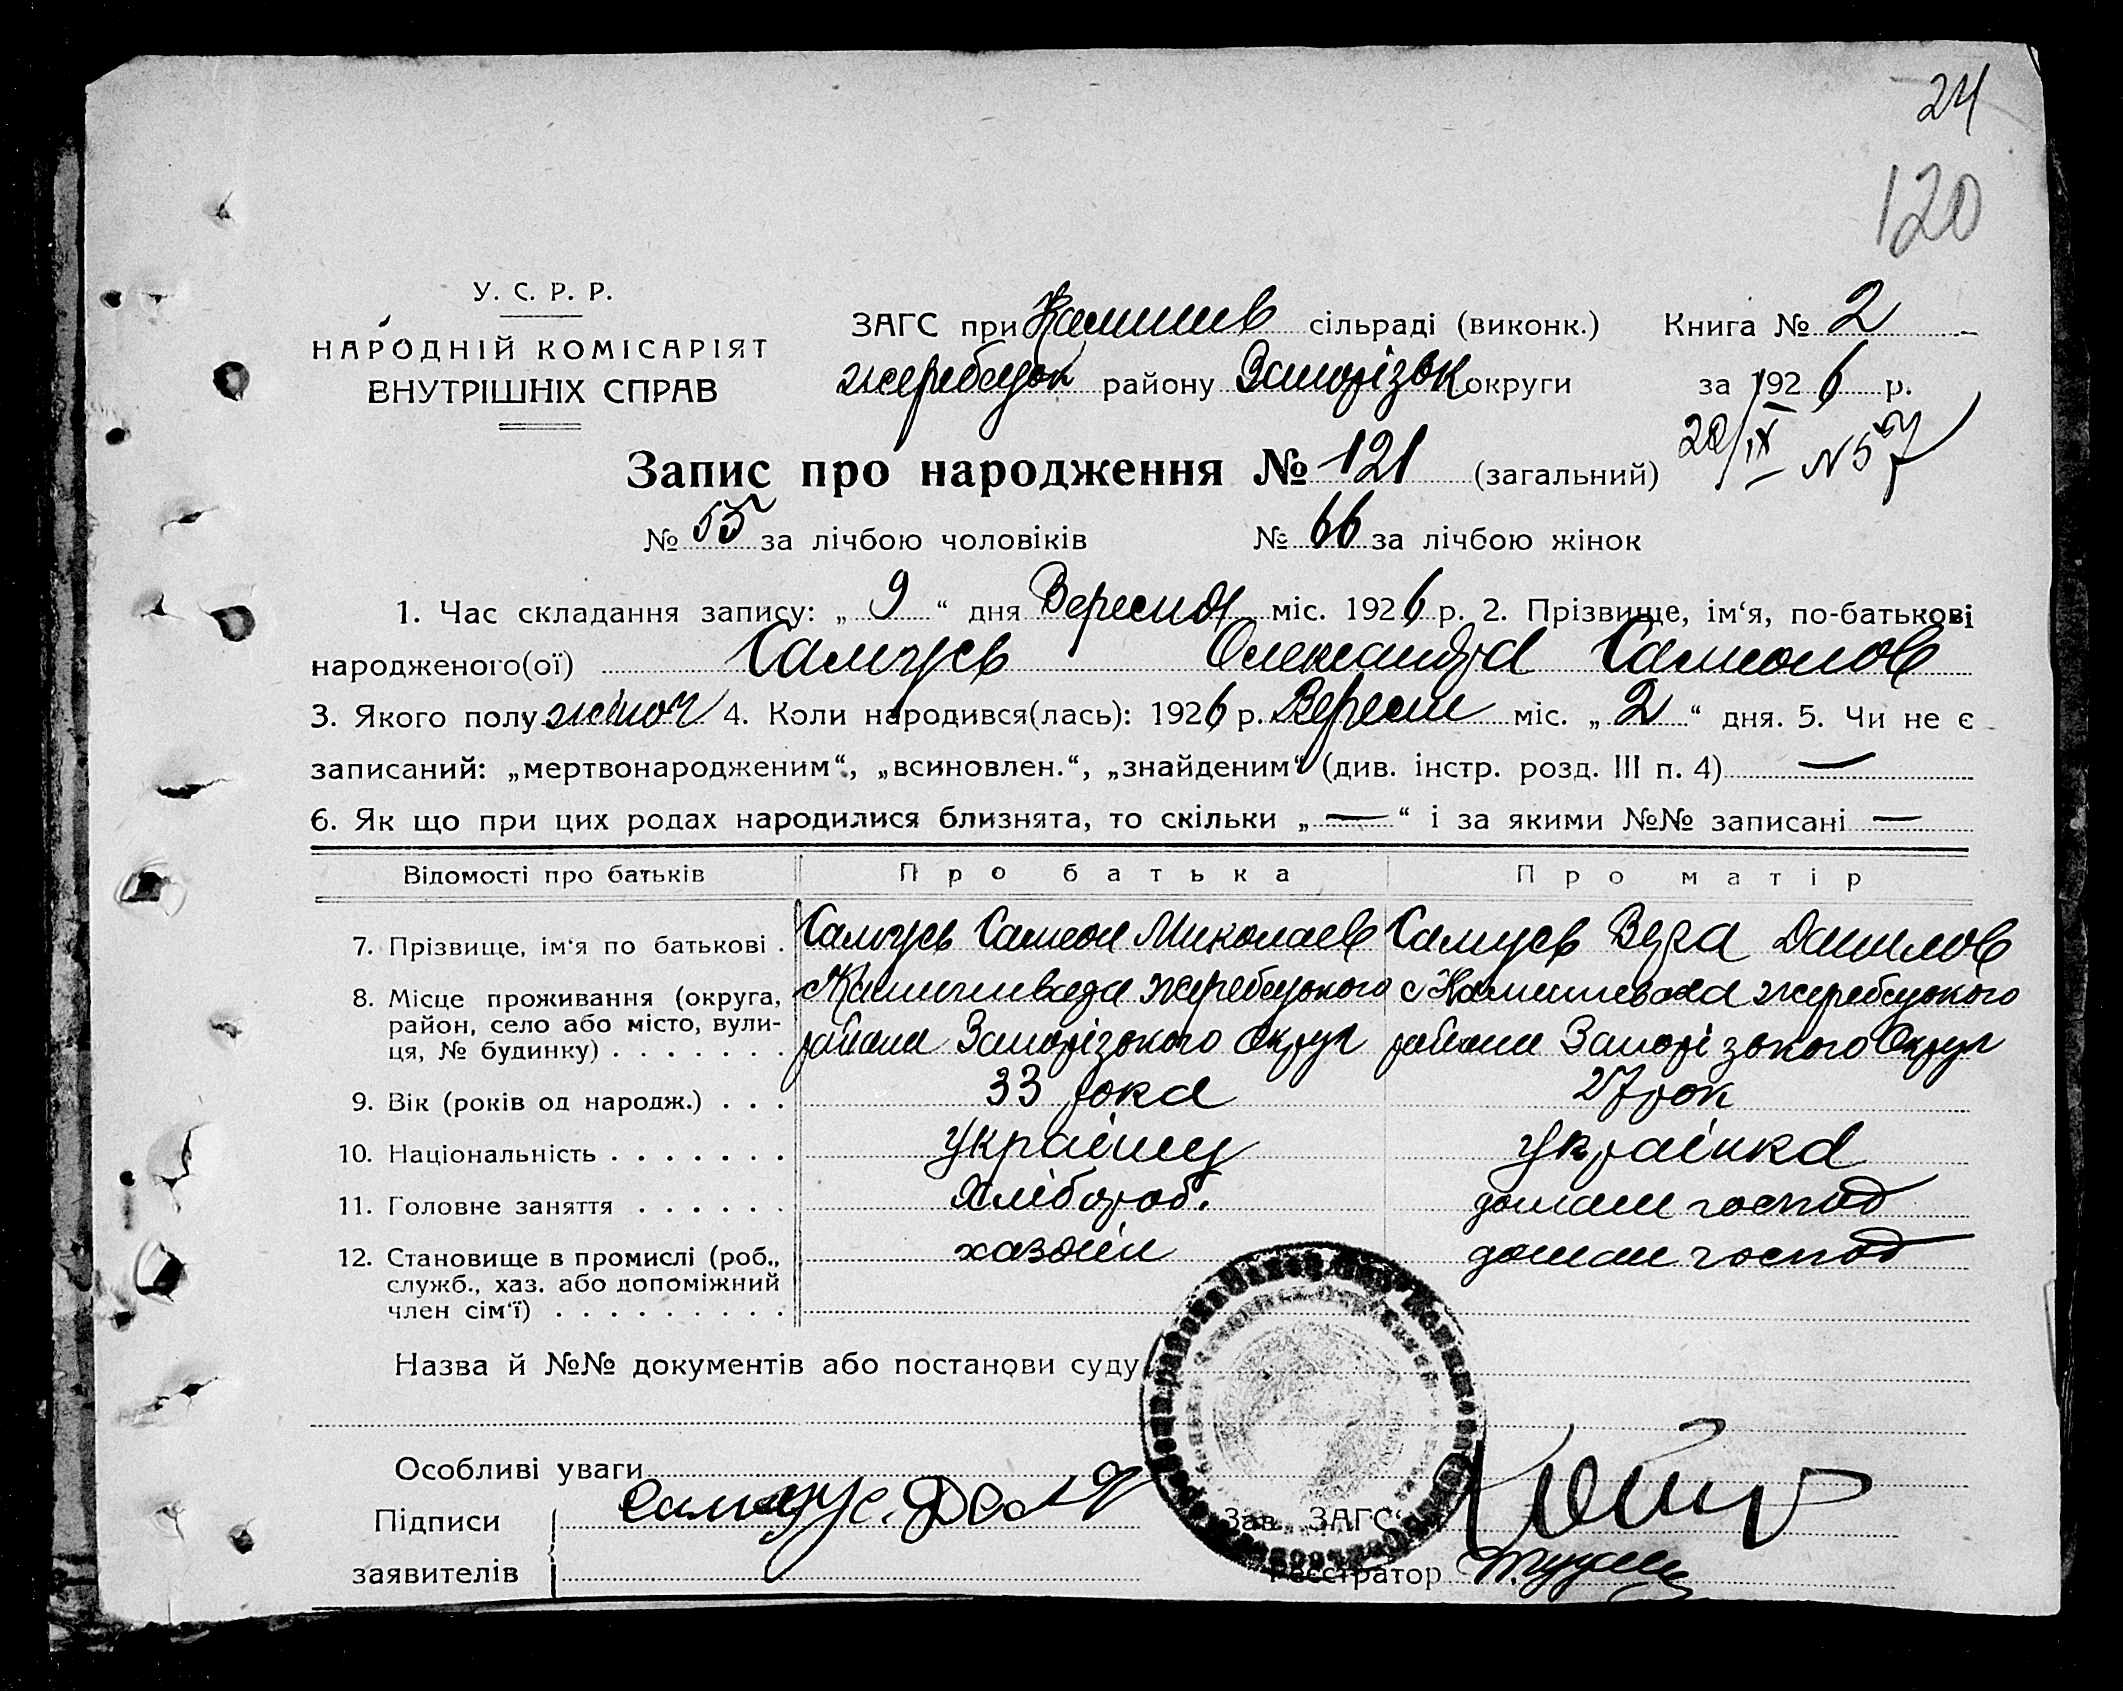 24
120
У. С. Р. Р.
НАРОДНІЙ КОМІСАРІЯТ
ВНУТРІШНІХ СПРАВ
ЗАГС при Камишів сільраді (виконк.) Книга № 2
жеребецьк району Запорізьк округи за 1926 р.
20/IX N 57
Запис про народження № 121 (загальний)
№ 55 за лічбою чоловіків № 66 за лічбою жінок
1. Час складання запису: „ 9 “ дня Вересня міс. 1926 р. 2. Прізвище, ім‘я, по-батькові
народженого(ої) Самусь Олександра Самсонов
3. Якого полу жіноч 4. Коли народився(лась): 1926 р. Вересня міс. „ 2 “ дня. 5. Чи не є
записаний: „мертвонародженим“, „всиновлен.“, „знайденим“ (див. інстр. розд. III п. 4) —
6. Як що при цих родах народилися близнята, то скільки „ — “ і за якими №№ записані —
Відомості про батьків Про батька Про матір
7. Прізвище, ім‘я по батькові . Самусь Самсон Миколаєв Самусь Вера Данилов
8. Місце проживання (округа, район, село або місто, вулиця, № будинку) . . . . . . .
с Камишеваха жеребецького с Камишеваха жеребецького
района Запорізького Округ района Запорізького Округ
9. Вік (років од народж.) . . . 33 рока 27 рок
10. Національність . . . . . . . українец українка
11. Головне заняття . . . . . . хлібороб. домашн господ
12. Становище в промислі (роб., хазяїн домашн господ
служб., хаз. або допоміжний
член сім‘ї) . . . . . . . . .
Назва й №№ документів або постанови суду
Особливі уваги
Підписи Самусь
заявителів
Зав. ЗАГС‘
Реєстратор